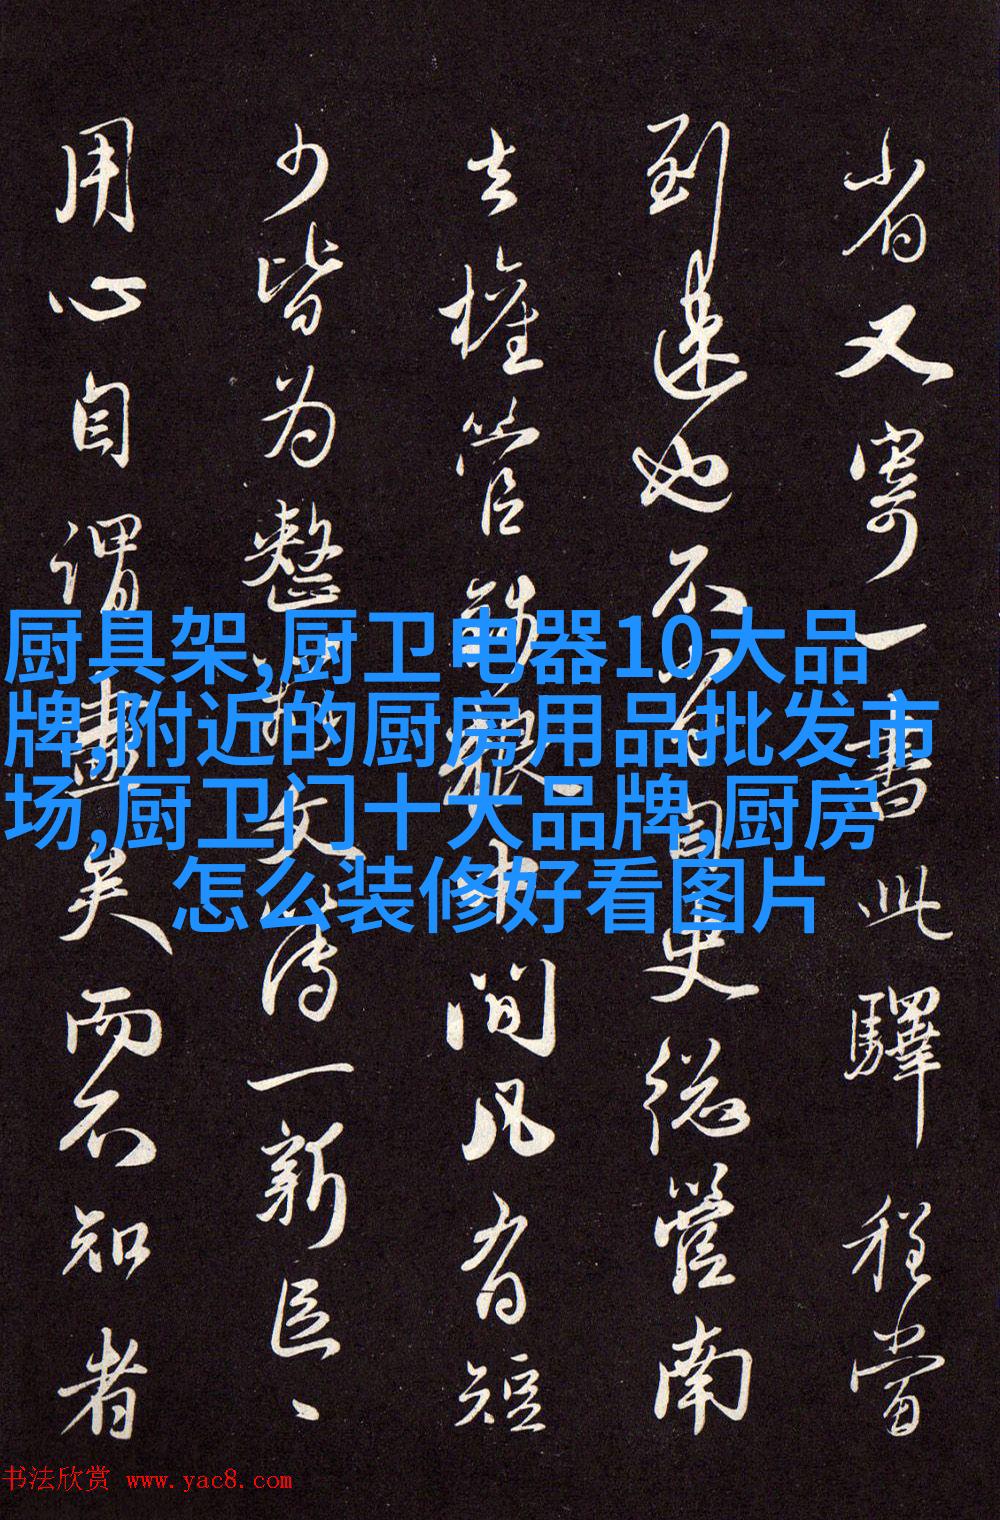 省又寄一書此驛程當
到速也不自史總管南
去權管中間凡有短
少皆为整文一新
用心自謂盡矣而不知者
厨具架,厨卫电器10大品
牌,附近的厨房用品批发市
场,厨卫门十大品牌,厨房
怎么装修好看图片
书法欣赏 www.yac8.com